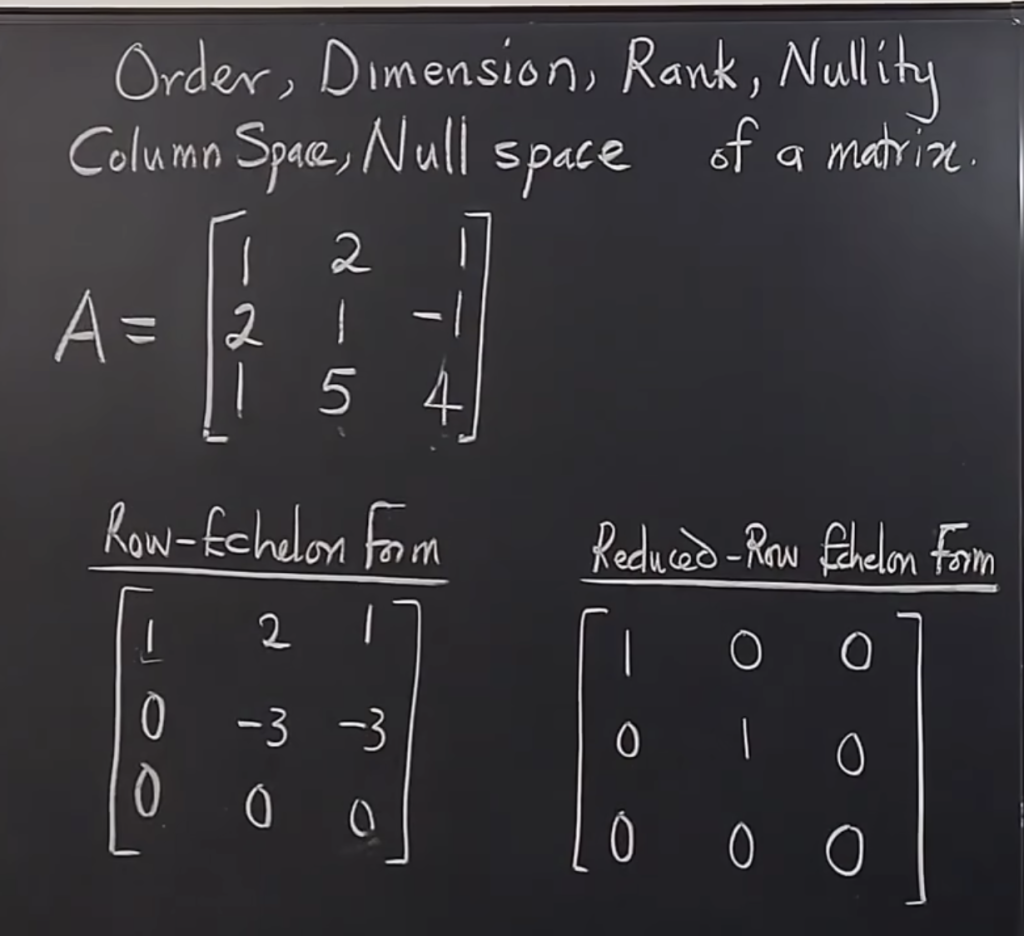 Order, Dimension, Rank, Nullity
Column Space, Null space of a matrix.
A = [1 2 1
2 1 -1
1 5 4]
Row-Echelon Form Reduced-Row Echelon Form
[1 2 1 [1 0 0
0 -3 -3 0 1 0
0 0 0] 0 0 0]